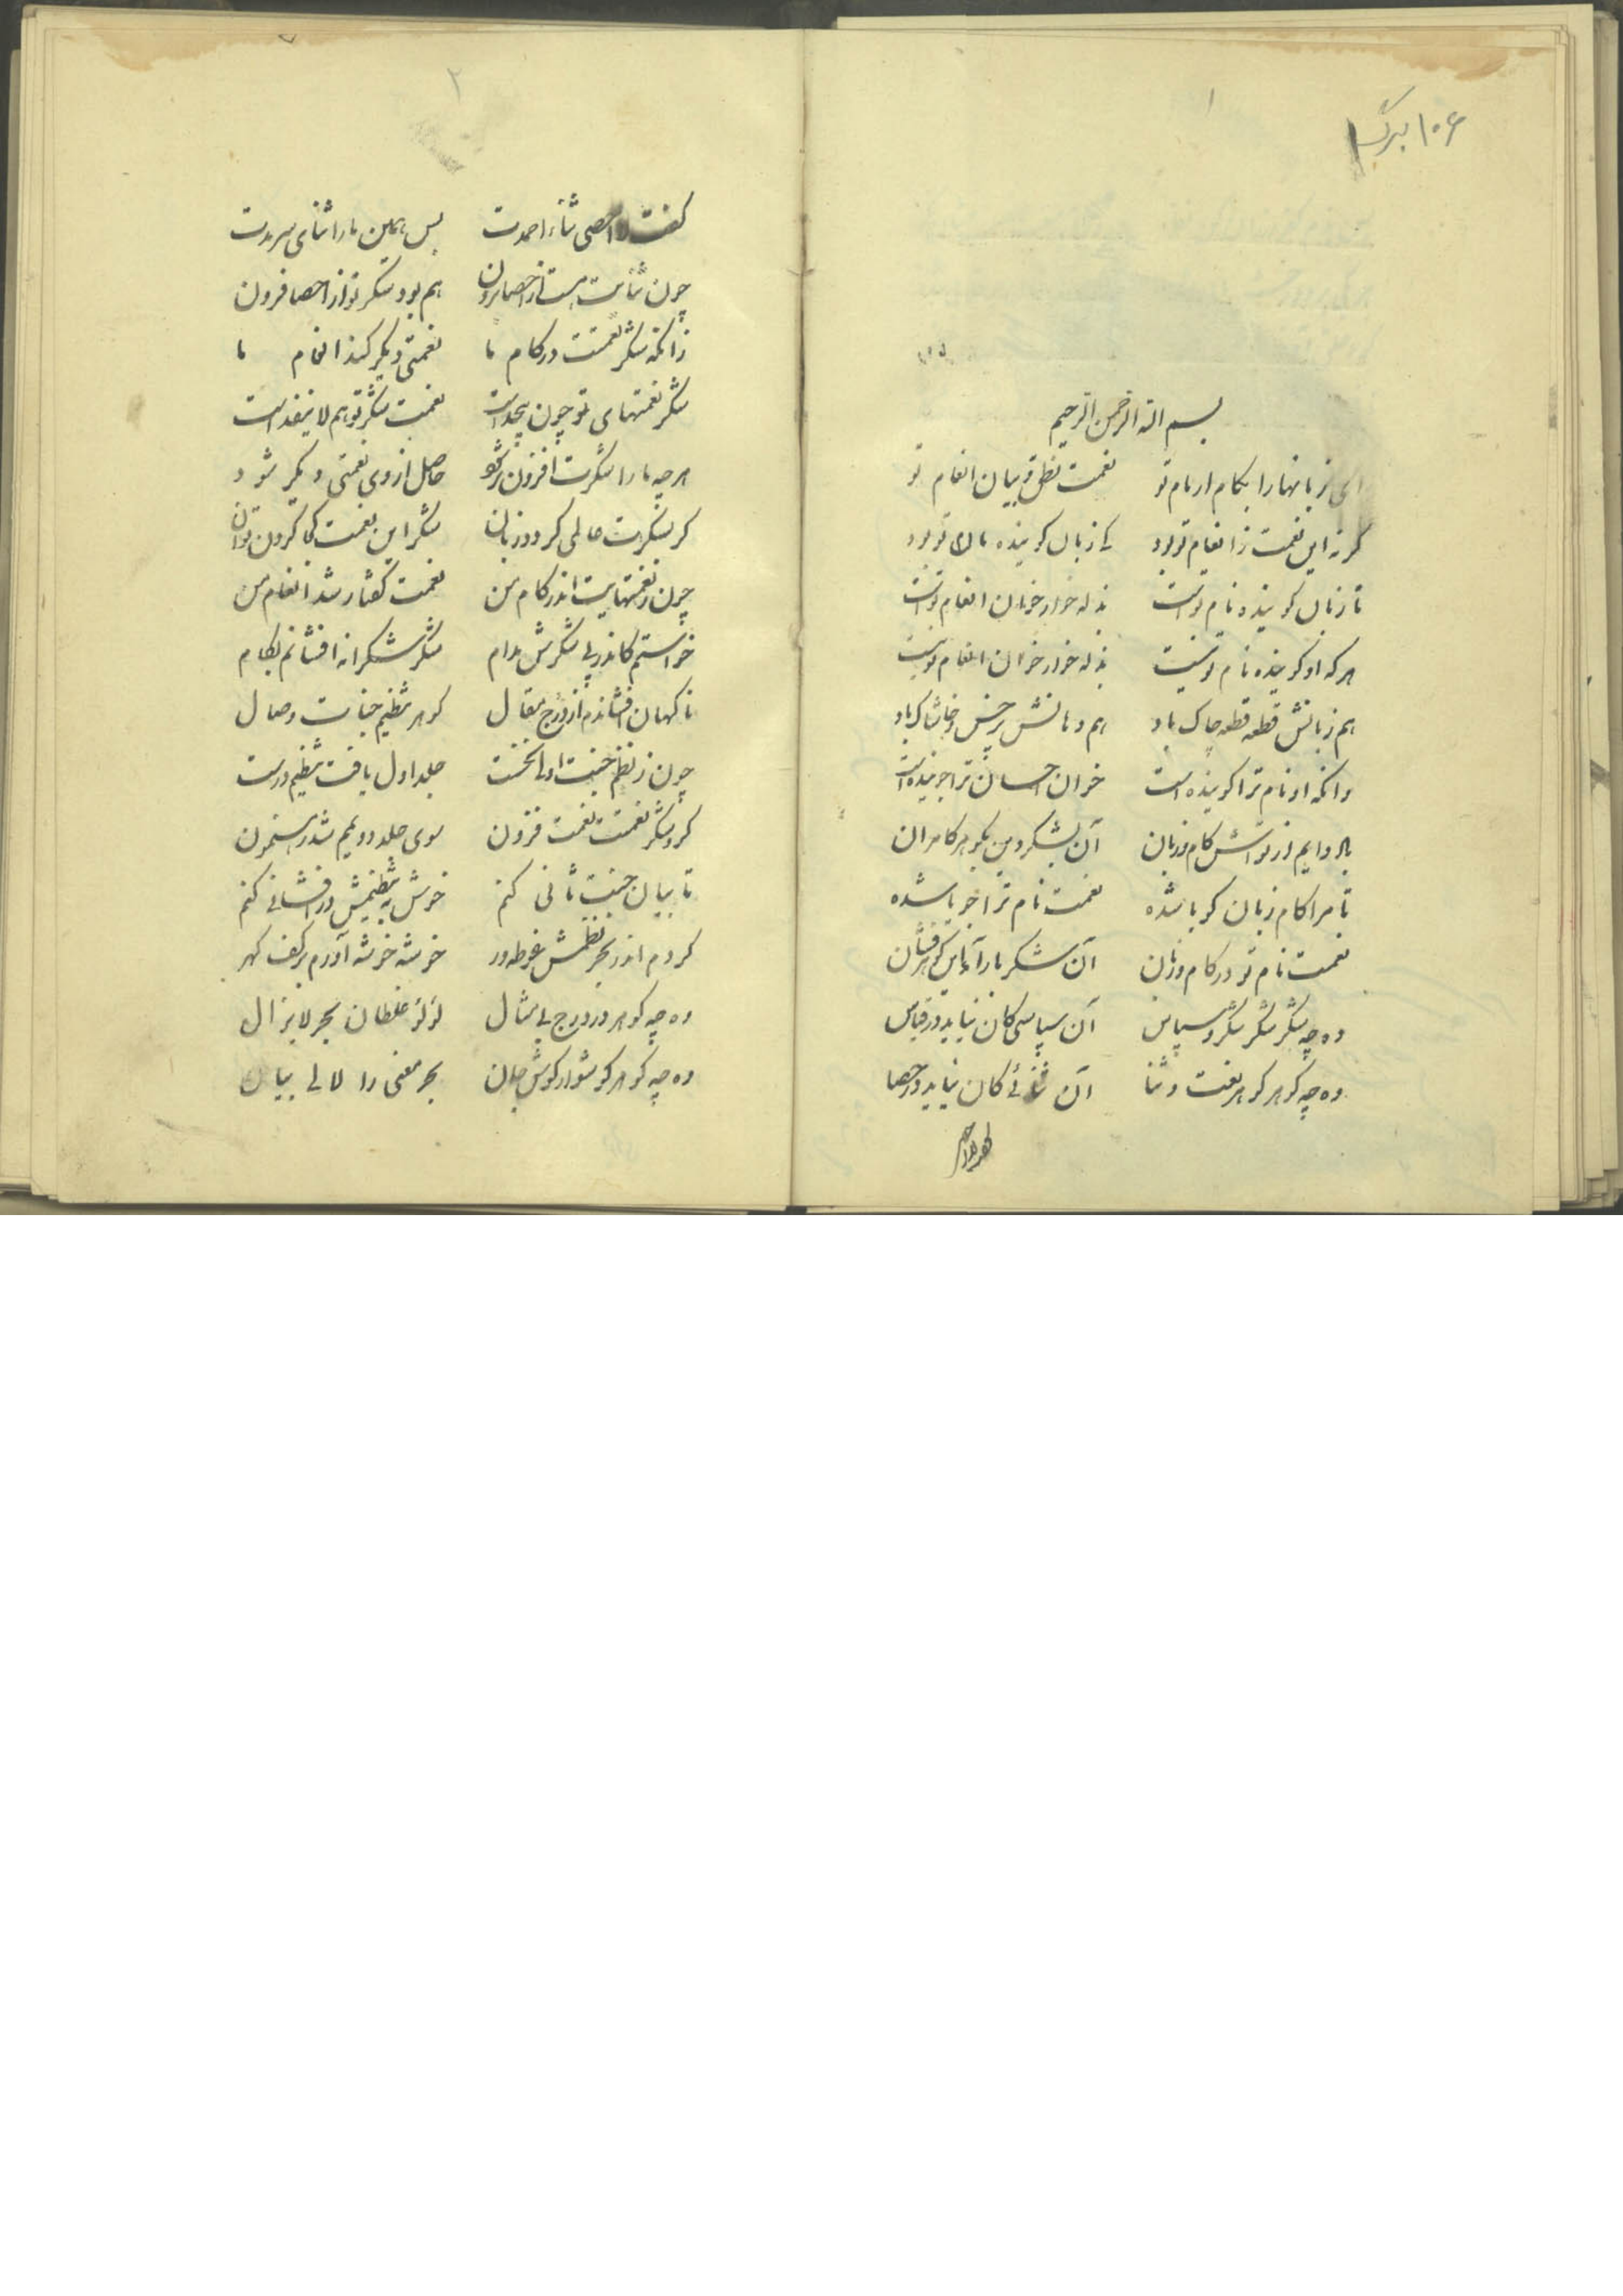 ۱۰۶ برگ
۱
بسم الله الرحمن الرحیم
ای زبانها را بکام از نام تو نعمت نطق و بیان انعام تو
گر نه این نعمت ز انعام تو بود کی زبان گوینده نام تو بود
تا زبان گوینده نام تو است بذله خوار خوان انعام تو است
هر که او گوینده نام تو نیست بذله خوار خوان انعام تو نیست
هم زبانش قطعه قطعه چاک باد هم دهانش پر خس و خاشاک باد
وانکه او نام ترا گوینده است خوان احسان ترا جوینده است
دایم از تو کام و زبان آن بشکر و این بگوهر کامران
تا مرا کام زبان گویا شده نعمت نام ترا جویا شده
نعمت نام تو در کام و زبان آن شکر بار آمد این گوهر فشان
وه چه شکر شکر شکر و سپاس آن سپاسی کان نیاید در قیاس
وه چه گوهر گوهر نعت و ثنا آن ثنائی کان نیاید در حصا
۲
گفت لا احصی ثناء احمدت بس همین ما را ثنای سرمدت
چون ثنایت هست از احصا برون هم بود شکر تو از احصا فزون
زانکه شکر نعمتت در کام ما نعمتی دیگر کند انعام ما
شکر نعمتهای تو چون بیحد است نعمت شکر تو هم لا ینفد است
هر چه ما را شکرت افزون تر شود حاصل از وی نعمتی دیگر شود
گر شکرت حالی کرد و زبان شکر این نعمت کجا کردن توان
چون ز نعمتهایت اندر کام من نعمت گفتار شد انعام من
خواستم کاندر پی شکرش مدام شکر شکرانه افشانم بکام
ناگهان افشاندم از درج مقال گوهر تنظیم جنات وصال
چون ز نظم جنت اولی نخست جلد اول یافت تنظیم درست
کرد شکر نعمتت نعمت فزون سوی جلد دویم شد رهنمون
تا بیان جنت ثانی کنم خوش به تنظیمش درافشانی کنم
کردم اندر بحر نظمش غوطه ور خوشه خوشه آورم بر کف گهر
وه چه گوهر در درج بی مثال لؤلؤ غلطان بحر لایزال
وه چه گوهر گوشوار گوش جان بحر معنی را لالی بیان